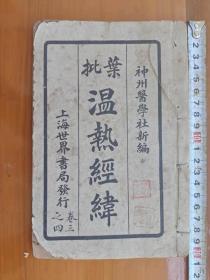 神州醫學社新編
葉批
溫熱經緯
上海世界書局發行
卷三之四